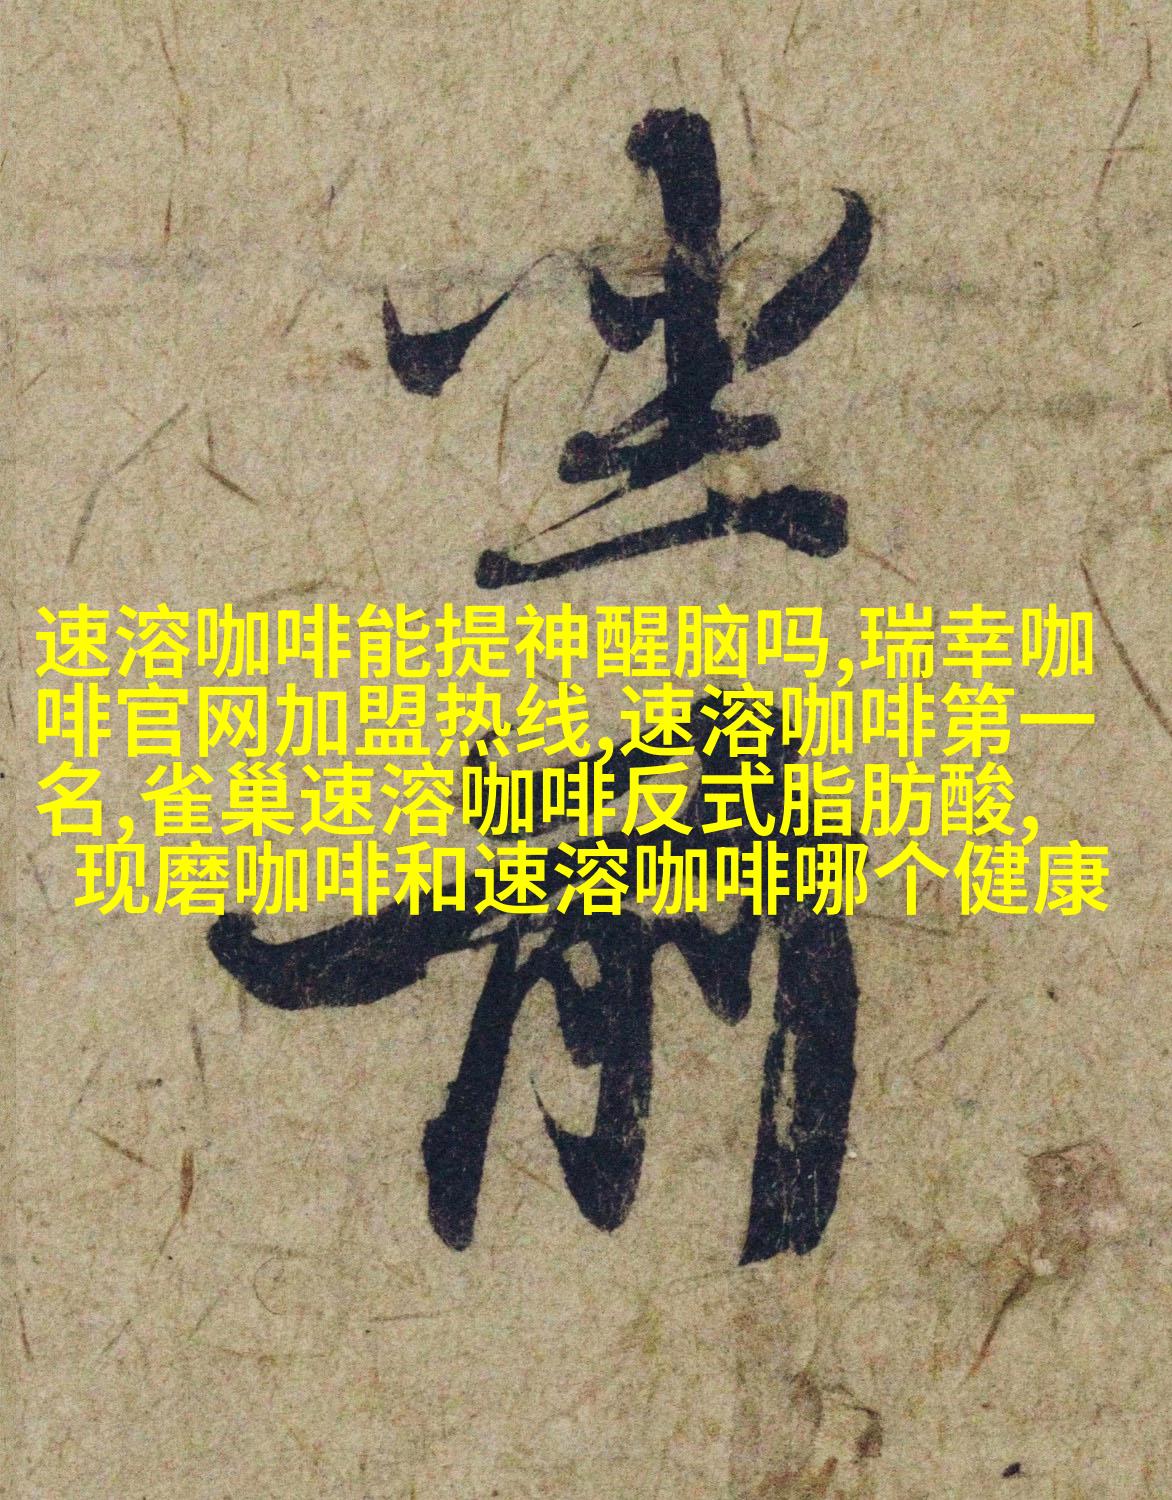 速溶咖啡能提神醒脑吗,瑞幸咖
啡官网加盟热线,速溶咖啡第一
名,雀巢速溶咖啡反式脂肪酸,
现磨咖啡和速溶咖啡哪个健康